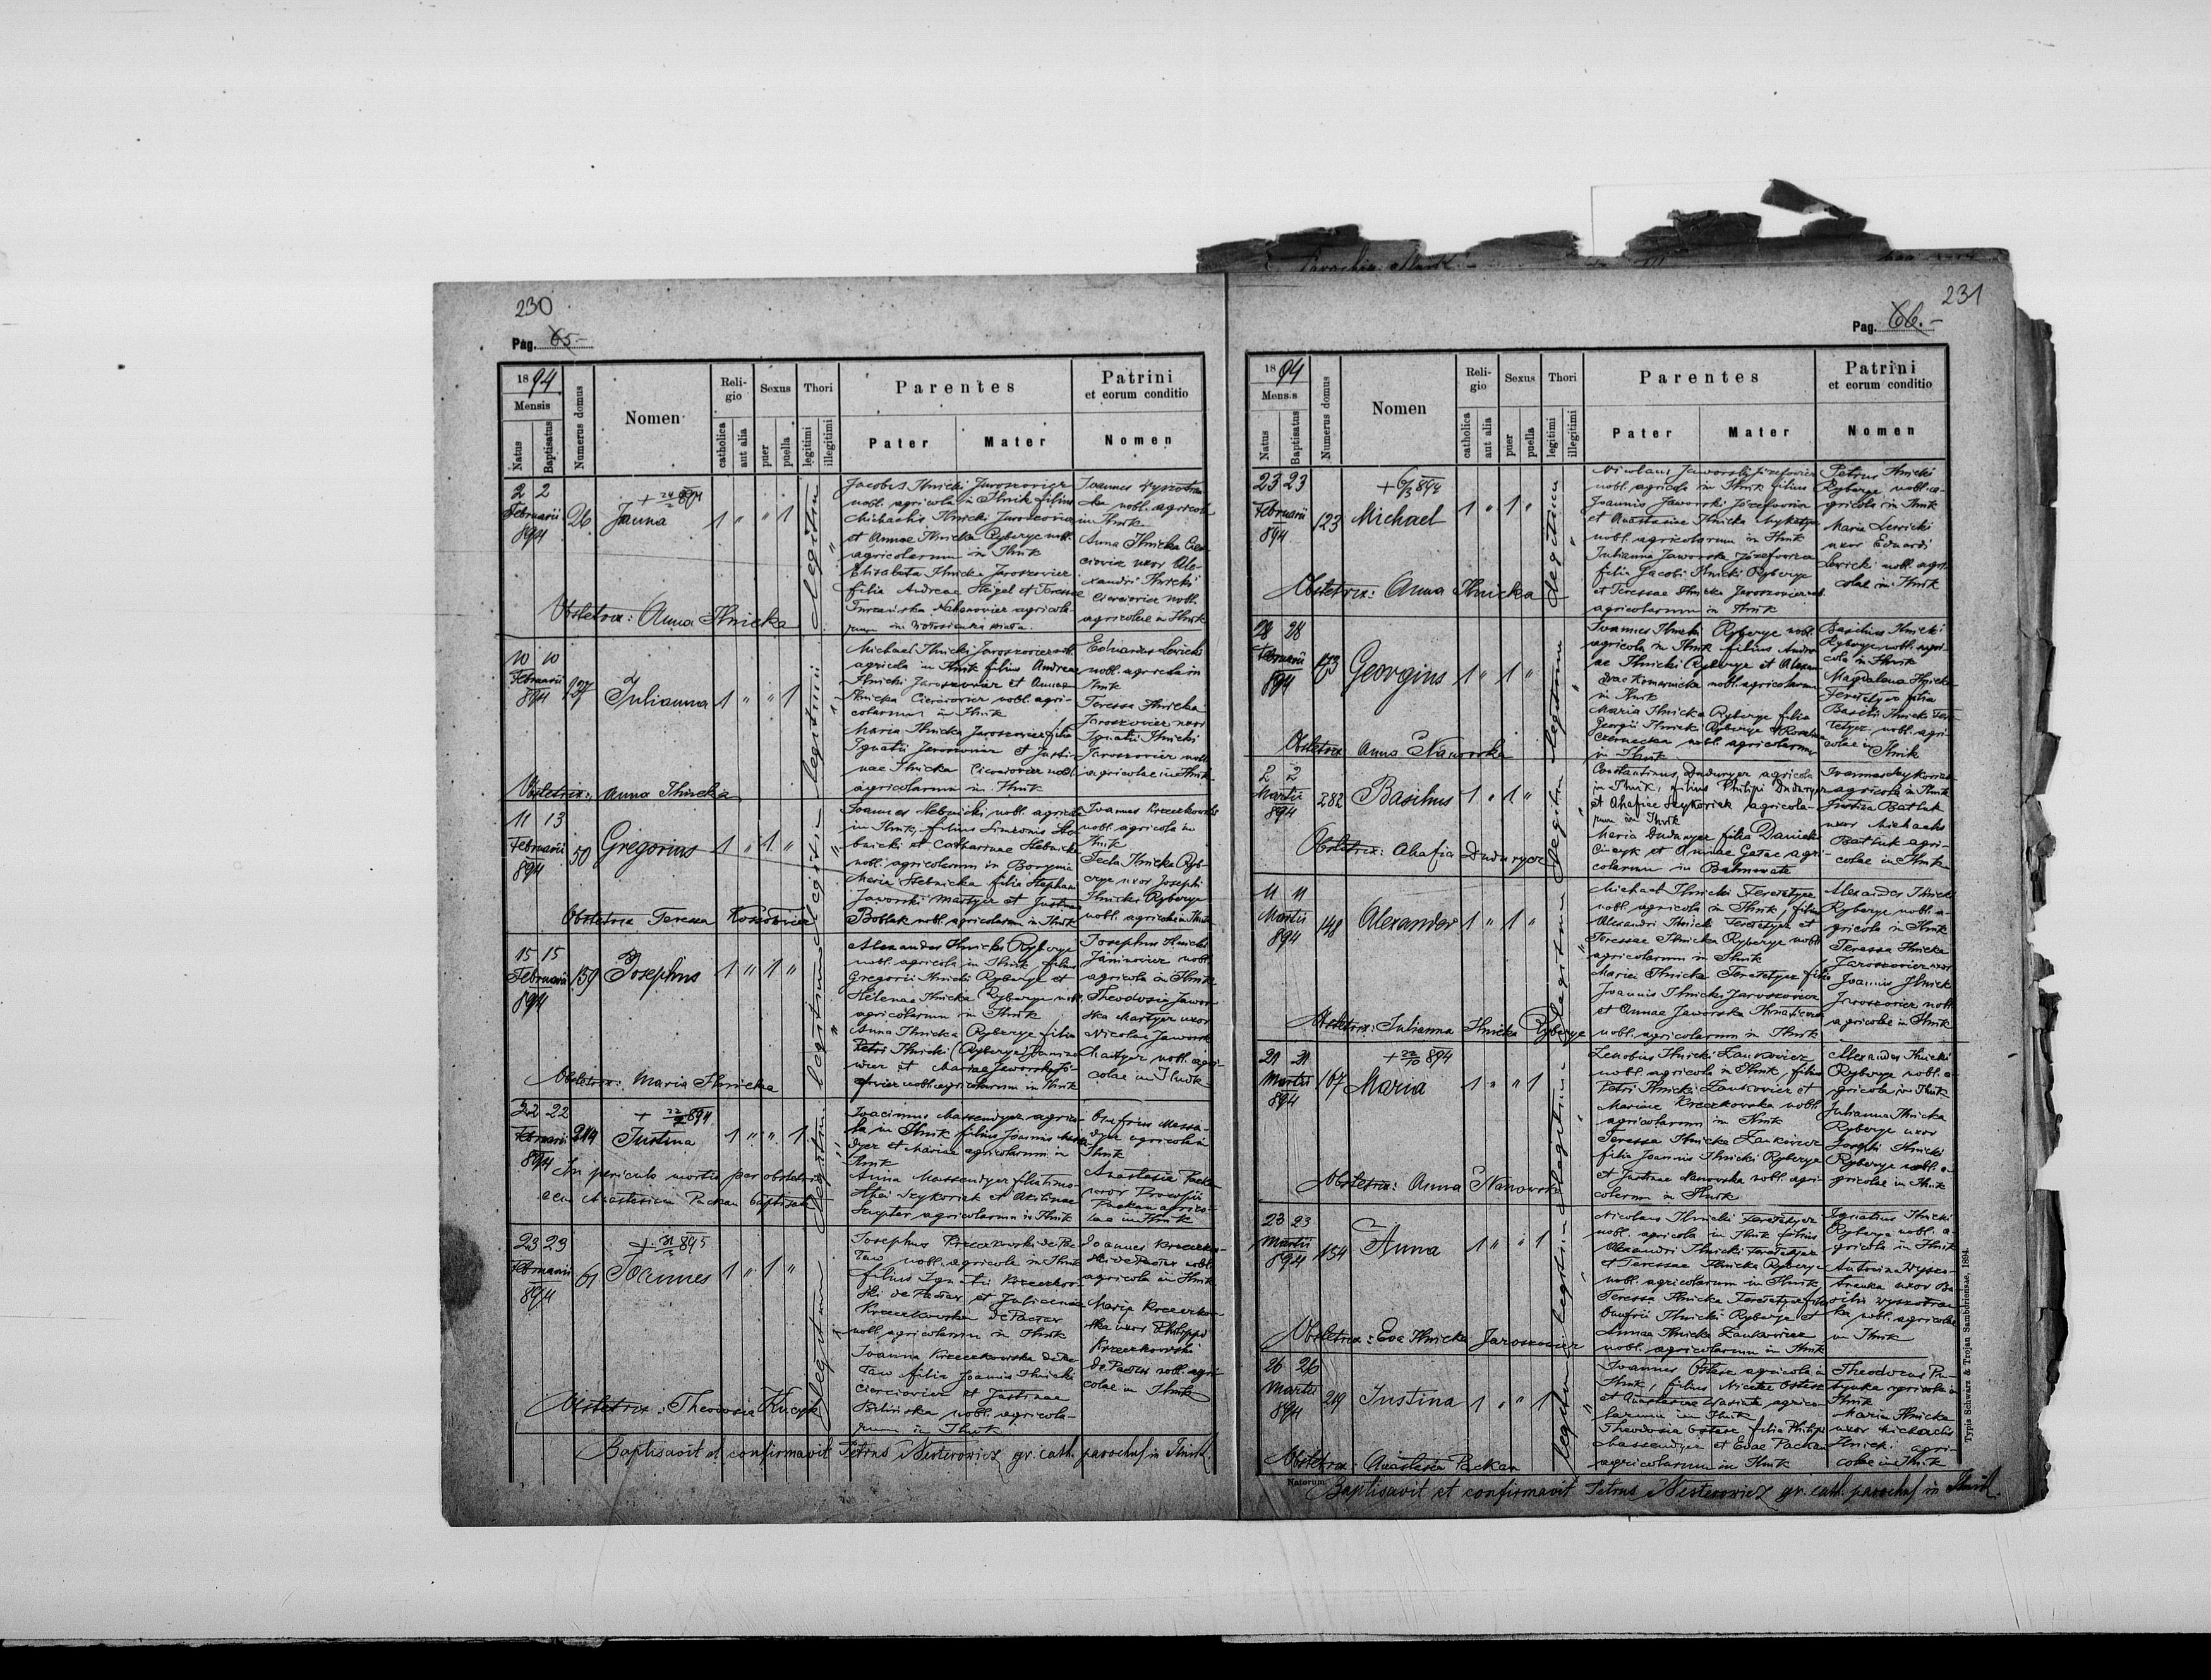 230
Pag. 65.-
18 94
Mensis
Natus
Baptisatus
Numerus domus
Nomen
Reli-
gio
catholica
aut alia
Sexus
puer
puella
Thori
legitimi
illegitimi
Parentes
Pater
Mater
Patrini
et eorum conditio
Nomen
2 2
Februarii
894
26
Janna
1 " " 1
Jacobus Ilnicki Jaroszowicz
nobl. agricola in Ilnik filius
Michaelis Ilnicki Jaroszowicz
et Annae Ilnicka Ryberye nobl.
agricolarum in Ilnik
Elisabeta Ilnicka Jaroszowicz
filia Andreae Heigel et Teresae
agricola-
rum in
Joannes Wysoczan
nobl. agricola
in Ilnik
Anna Ilnicka Cier-
ciowicz uxor Ale-
xandri Ilnicki
Cierciowicz nobl.
agricolae in Ilnik
Obstetrix: Anna Ilnicka
10 10
Februarii
894
137
Julianna
1 " " 1
Michael Ilnicki Jaroszowicz nobl.
agricola in Ilnik filius Andreae
Ilnicki Jaroszowicz et Annae
Ilnicka Cierciowicz nobl. agri-
colarum in Ilnik
Maria Ilnicka Jaroszowicz filia
Ignatii Jaroszowicz et Justi-
nae Ilnicka Cierciowicz nobl.
agricolarum in Ilnik
Eduardus Lewicki
nobl. agricola in
Ilnik
Teressa Ilnicka
Jaroszowicz uxor
Ignatii Ilnicki
Jaroszowicz nobl.
agricolae in Ilnik
Obstetrix: Anna Ilnicka
11 13
Februarii
894
50
Gregorius
1 " 1 "
Joannes Hlebnicki nobl. agricola
in Ilnik, filius Simeonis Hle-
bnicki et Catharinae Hlebnicka
nobl. agricolarum in Borynia
Maria Hlebnicka filia Stephani
Jaworski Martycz et Justinae
Boblak nobl. agricolarum in Ilnik
Joannes Kreczkowski
nobl. agricola in
Ilnik
Tecla Ilnicka Ryb-
erye uxor Josephi
Ilnicki Ryberye
nobl. agricolae in Ilnik
Obstetrix Teressa
15 15
Februarii
894
159
Josephus
1 " 1 "
Alexander Ilnicki Ryberye
nobl. agricola in Ilnik, filius
Gregorii Ilnicki Ryberye et
Helenae Ilnicka Ryberye nobl.
agricolarum in Ilnik
Anna Ilnicka Ryberye filia
Petri Ilnicki (Ryberye) Janino-
wicz et Mariae Jaworska Jó-
zefowicz nobl. agricolarum in Ilnik
Josephus Ilnicki
Janinowicz nobl.
agricola in Ilnik
Theodosia Jawor-
ska Martycz uxor
Nicolai Jaworski
Martycz nobl. agri-
colae in Ilnik
Obstetrix: Maria Ilnicka
22 22
Februarii
894
214
Justina
1 " " 1
Joacimus Massendycz agrico-
la in Ilnik filius Joannis Massen-
dycz et Mariae agricolarum in
Ilnik
Anna Massendycz filia Timo-
thei Szykoriak et
agricolarum in Ilnik
Onufrius Massen-
dycz agricola in
Ilnik
Anastasia Packan
uxor Procopii
Packan agrico-
lae in Ilnik
In periculo mortis per obstetri-
cem Anastasiam Packan baptisata
23 23
Februarii
894
61
Joannes
1 " 1 "
Josephus Kreczkowski de Pac-
taw nobl. agricola in Ilnik
filius Ignatii Kreczkow-
ski de Pactaw et Juliannae
Kreczkowska de Pactaw
nobl. agricolarum in Ilnik
Joanna Kreczkowska de Pac-
taw filia Joannis Ilnicki
Cierciowicz et Justinae
Bilińska nobl. agricola-
rum in Ilnik
Joannes Kreczkow-
ski de Pactaw nobl.
agricola in Ilnik
Maria Kreczkow-
ska uxor Philippi
Kreczkowski
de Pactaw nobl. agri-
colae in Ilnik
Obstetrix: Theodosia Kuczyk
Baptisavit et confirmavit Petrus Nesterowicz gr. cath. parochus in Ilnik.
231
Pag. 66.-
18 94
Mensis
Natus
Baptisatus
Numerus domus
Nomen
Reli-
gio
catholica
aut alia
Sexus
puer
puella
Thori
legitimi
illegitimi
Parentes
Pater
Mater
Patrini
et eorum conditio
Nomen
23 23
Februarii
894
123
Michael
1 " 1 "
Nicolaus Jaworski Józefowicz
nobl. agricola in Ilnik filius
Joannis Jaworski Józefowicz
et Anastasiae Ilnicka Mykytycz
nobl. agricolarum in Ilnik
Julianna Jaworska Józefowicz
filia Jacobi Ilnicki Ryberye
et Teressae Ilnicka Jaroszowicz nobl.
agricolarum in Ilnik
Petrus Ilnicki
Ryberye nobl. a-
gricola in Ilnik
Maria Lewicki
uxor Eduardi
Lewicki nobl. agri-
colae in Ilnik
Obstetrix: Anna Ilnicka
28 28
Februarii
894
173
Georgius
1 " 1 "
Joannes Ilnicki Ryberye nobl.
agricola in Ilnik filius Andre-
ae Ilnicki Ryberye et Alexan-
drae Komarnicka nobl. agricolarum
in Ilnik
Maria Ilnicka Ryberye filia
Georgii Ilnicki Ryberye et Rosaliae
Czernecka nobl. agricolarum
in Ilnik
Basilius Ilnicki
Ryberye nobl. agri-
cola in Ilnik
Magdalena Ilnicka
Teretetycz filia
Basilii Ilnicki Tere-
tetycz nobl. agri-
colae in Ilnik
Obstetrix: Anna Nanowska
2 2
Martii
894
282
Basilius
1 " 1 "
Constantinus Dudurycz agricola
in Ilnik, filius Philipi Dudurycz
et Ahafiae Szykoriak agricola-
rum in Ilnik
Maria Dudurycz filia Danielis
et Annae Gatae agri-
colarum in
Joannes Szykoriak
agricola in Ilnik
Justina Batluk
uxor Michaelis
Batluk agri-
colae in Ilnik
Obstetrix: Ahafia Dudurycz
11 11
Martii
894
148
Alexander
1 " 1 "
Michael Ilnicki Teretetycz
nobl. agricola in Ilnik, filius
Alexandri Ilnicki Teretetycz et
Teressae Ilnicka Ryberye nobl.
agricolarum in Ilnik
Maria Ilnicka Teretetycz filia
Joannis Ilnicki Jaroszowicz
et Annae Jaworska
nobl. agricolarum in Ilnik
Alexander Ilnicki
Ryberye nobl. a-
gricola in Ilnik
Teressa Ilnicka
Jaroszowicz uxor
Joannis Ilnicki
Jaroszowicz nobl.
agricolae in Ilnik
Obstetrix: Julianna Ilnicka Ryberye
21 21
Martii
894
167
Maria
1 " " 1
Zenobius Ilnicki Zankowicz
nobl. agricola in Ilnik, filius
Petri Ilnicki Zankowicz et
Mariae Kreczkowska nobl.
agricolarum in Ilnik
Teressa Ilnicka Zankowicz
filia Joannis Ilnicki Ryberye
et Justinae Nanowska nobl. agri-
colarum in Ilnik
Alexander Ilnicki
Ryberye nobl. a-
gricola in Ilnik
Julianna Ilnicka
Ryberye uxor
Josephi Ilnicki
Ryberye nobl. a-
gricolae in Ilnik
Obstetrix: Anna Nanowska
23 23
Martii
894
154
Anna
1 " " 1
Nicolaus Ilnicki Teretetycz
nobl. agricola in Ilnik filius
Alexandri Ilnicki Teretetycz
et Teressae Ilnicka Ryberye
nobl. agricolarum in Ilnik
Teressa Ilnicka Teretetycz filia
Onufrii Ilnicki Ryberye et
Annae Ilnicka Zankowicz
nobl. agricolarum in Ilnik
Ignatius Ilnicki
Ryberye nobl. a-
gricola in Ilnik
Antonina Wyso-
czanska uxor Ba-
silii Wysoczan-
ski nobl. agricolae
in Ilnik
Obstetrix: Eva Ilnicka Jaroszowicz
26 26
Martii
894
219
Justina
1 " " 1
Joannes Ostasz agricola in
Ilnik, filius Nicetae Ostasz
et Anastasiae Wasiuta agrico-
larum in Ilnik
Theodosia Ostasz filia Philippi
Massendycz et Evae Packan
agricolarum in Ilnik
agricola in
Ilnik
Maria Ilnicka
uxor Michaelis
Ilnicki agri-
colae in Ilnik
Obstetrix: Anastasia Packan
Natorum
Baptisavit et confirmavit Petrus Nesterowicz gr. cath. parochus in Ilnik.
Typis Schwarz & Trojan Samboriensae, 1894.